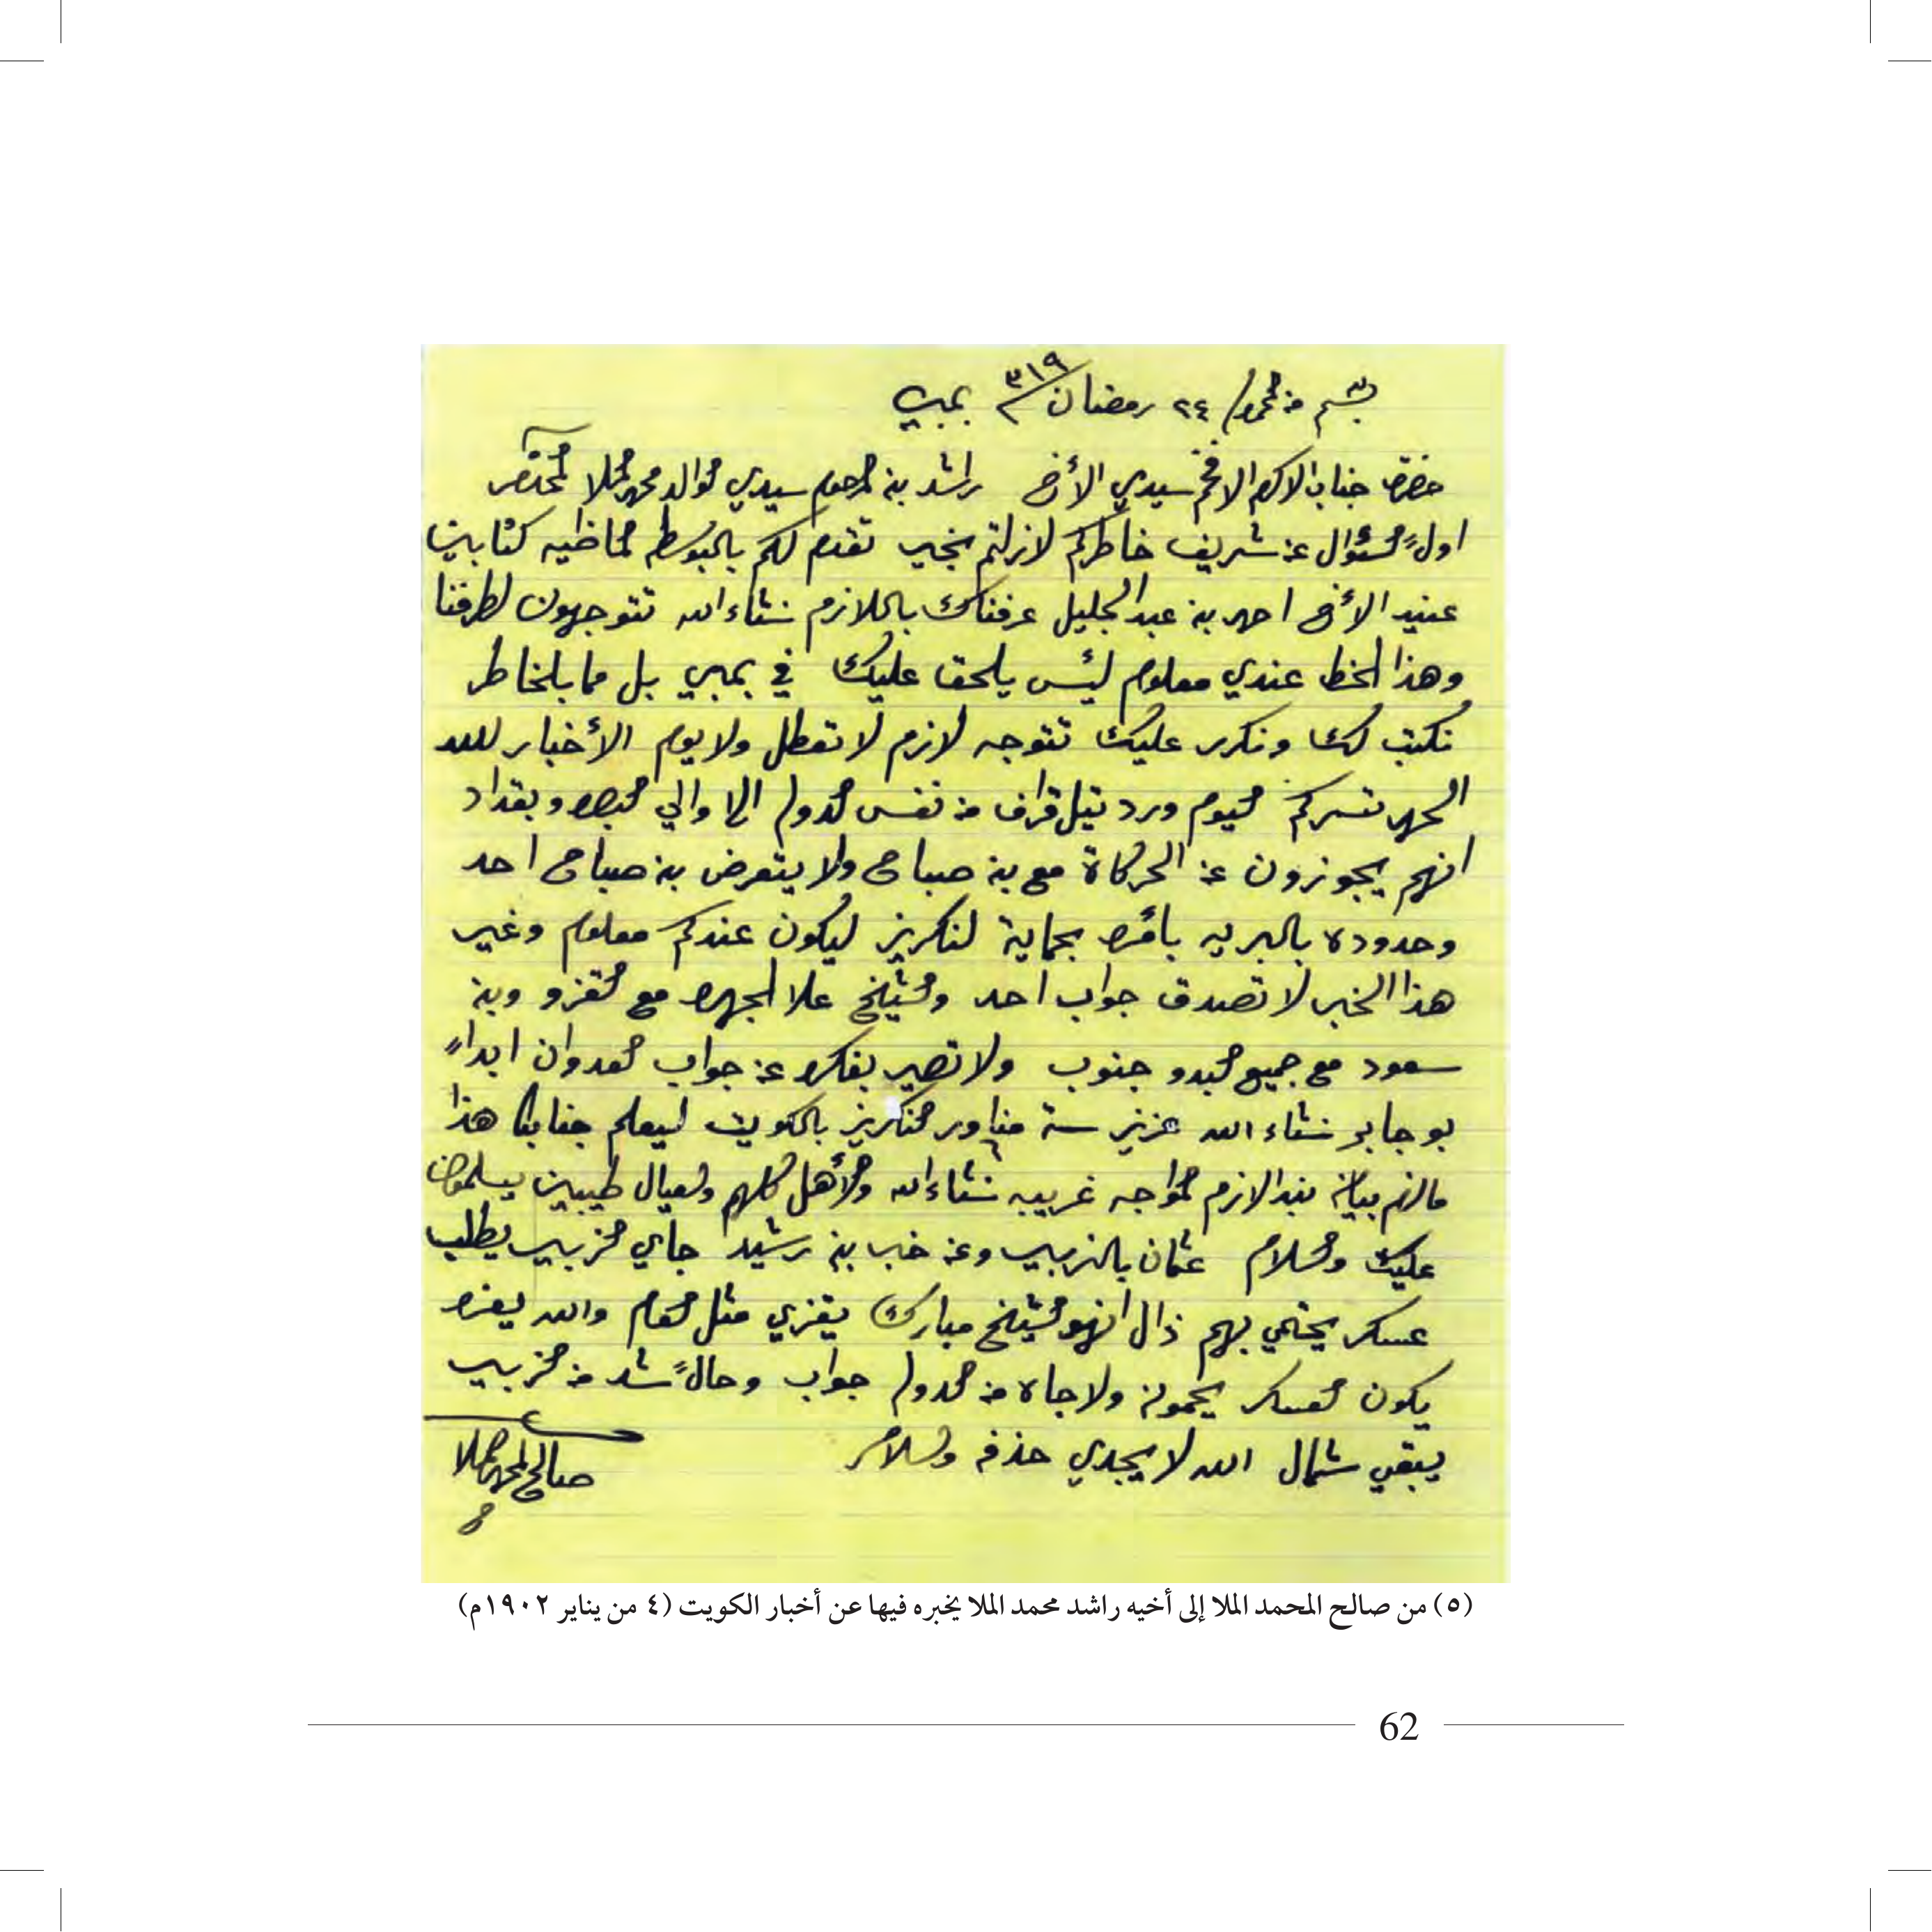 ٢٤ رمضان ٣١٩ بمبي
حضرة جناب الاكرم الافخم سيدي الأخ راشد بن المرحوم سيدي الوالد محمد الملا المحترم
اولً السئوال عن شريف خاطركم لازلتم بخير تقدم لكم بالبوسطه الماضيه كتابين
عنيد الأخ احمد بن عبدالجليل عرفناك باللازم نشاءالله تتوجهون لطرفنا
وهذا الخط عندي معلوم ليس يلحق عليك في بمبي بل ما بالخاطر
نكتب لك ونكرر عليك تتوجه لازم لا تعطل ولا يوم الأخبار لله
الحمد تسركم اليوم ورد تيل قراف من نفس الدوله الا والي البصره وبغداد
انهم يجوزون عن الحركاة مع بن صباح ولا يتعرض بن صباح احد
وحدوده بالبريه بأمره بحماية لنكريز ليكون عندكم معلوم وغير
هذا الخبر لا تصدق جواب احد والشيخ علا الجهره مع الغزو وبن
سعود مع جميع البدو جنوب ولا تصير بفكره عن جواب العدوان ابداً
بو جابر نشاء الله عزيز ستة مناور النكريز بالكويت ليعلم جنابك هذا
مالزم بيانه بندالازم المواجه غريبه نشاءالله والأهل كلهم والعيال طيبين يسلمون
عليك والسلام عثمان بالزبير وعن خبر بن رشيد جاي الزبير يطلب
عسكر يحتمي بهم ذال انهو الشيخ مبارك يغزي مثل العام والله يغزه
يكون العسكر يحمونه ولا جاه من الدوله جواب وحالً شد من الزبير
يبقي شمال الله لا يجدي حذفه والسلام
صالح المحمد الملا
(٥) من صالح المحمد الملا إلى أخيه راشد محمد الملا يخبره فيها عن أخبار الكويت (٤ من يناير ١٩٠٢م)
62